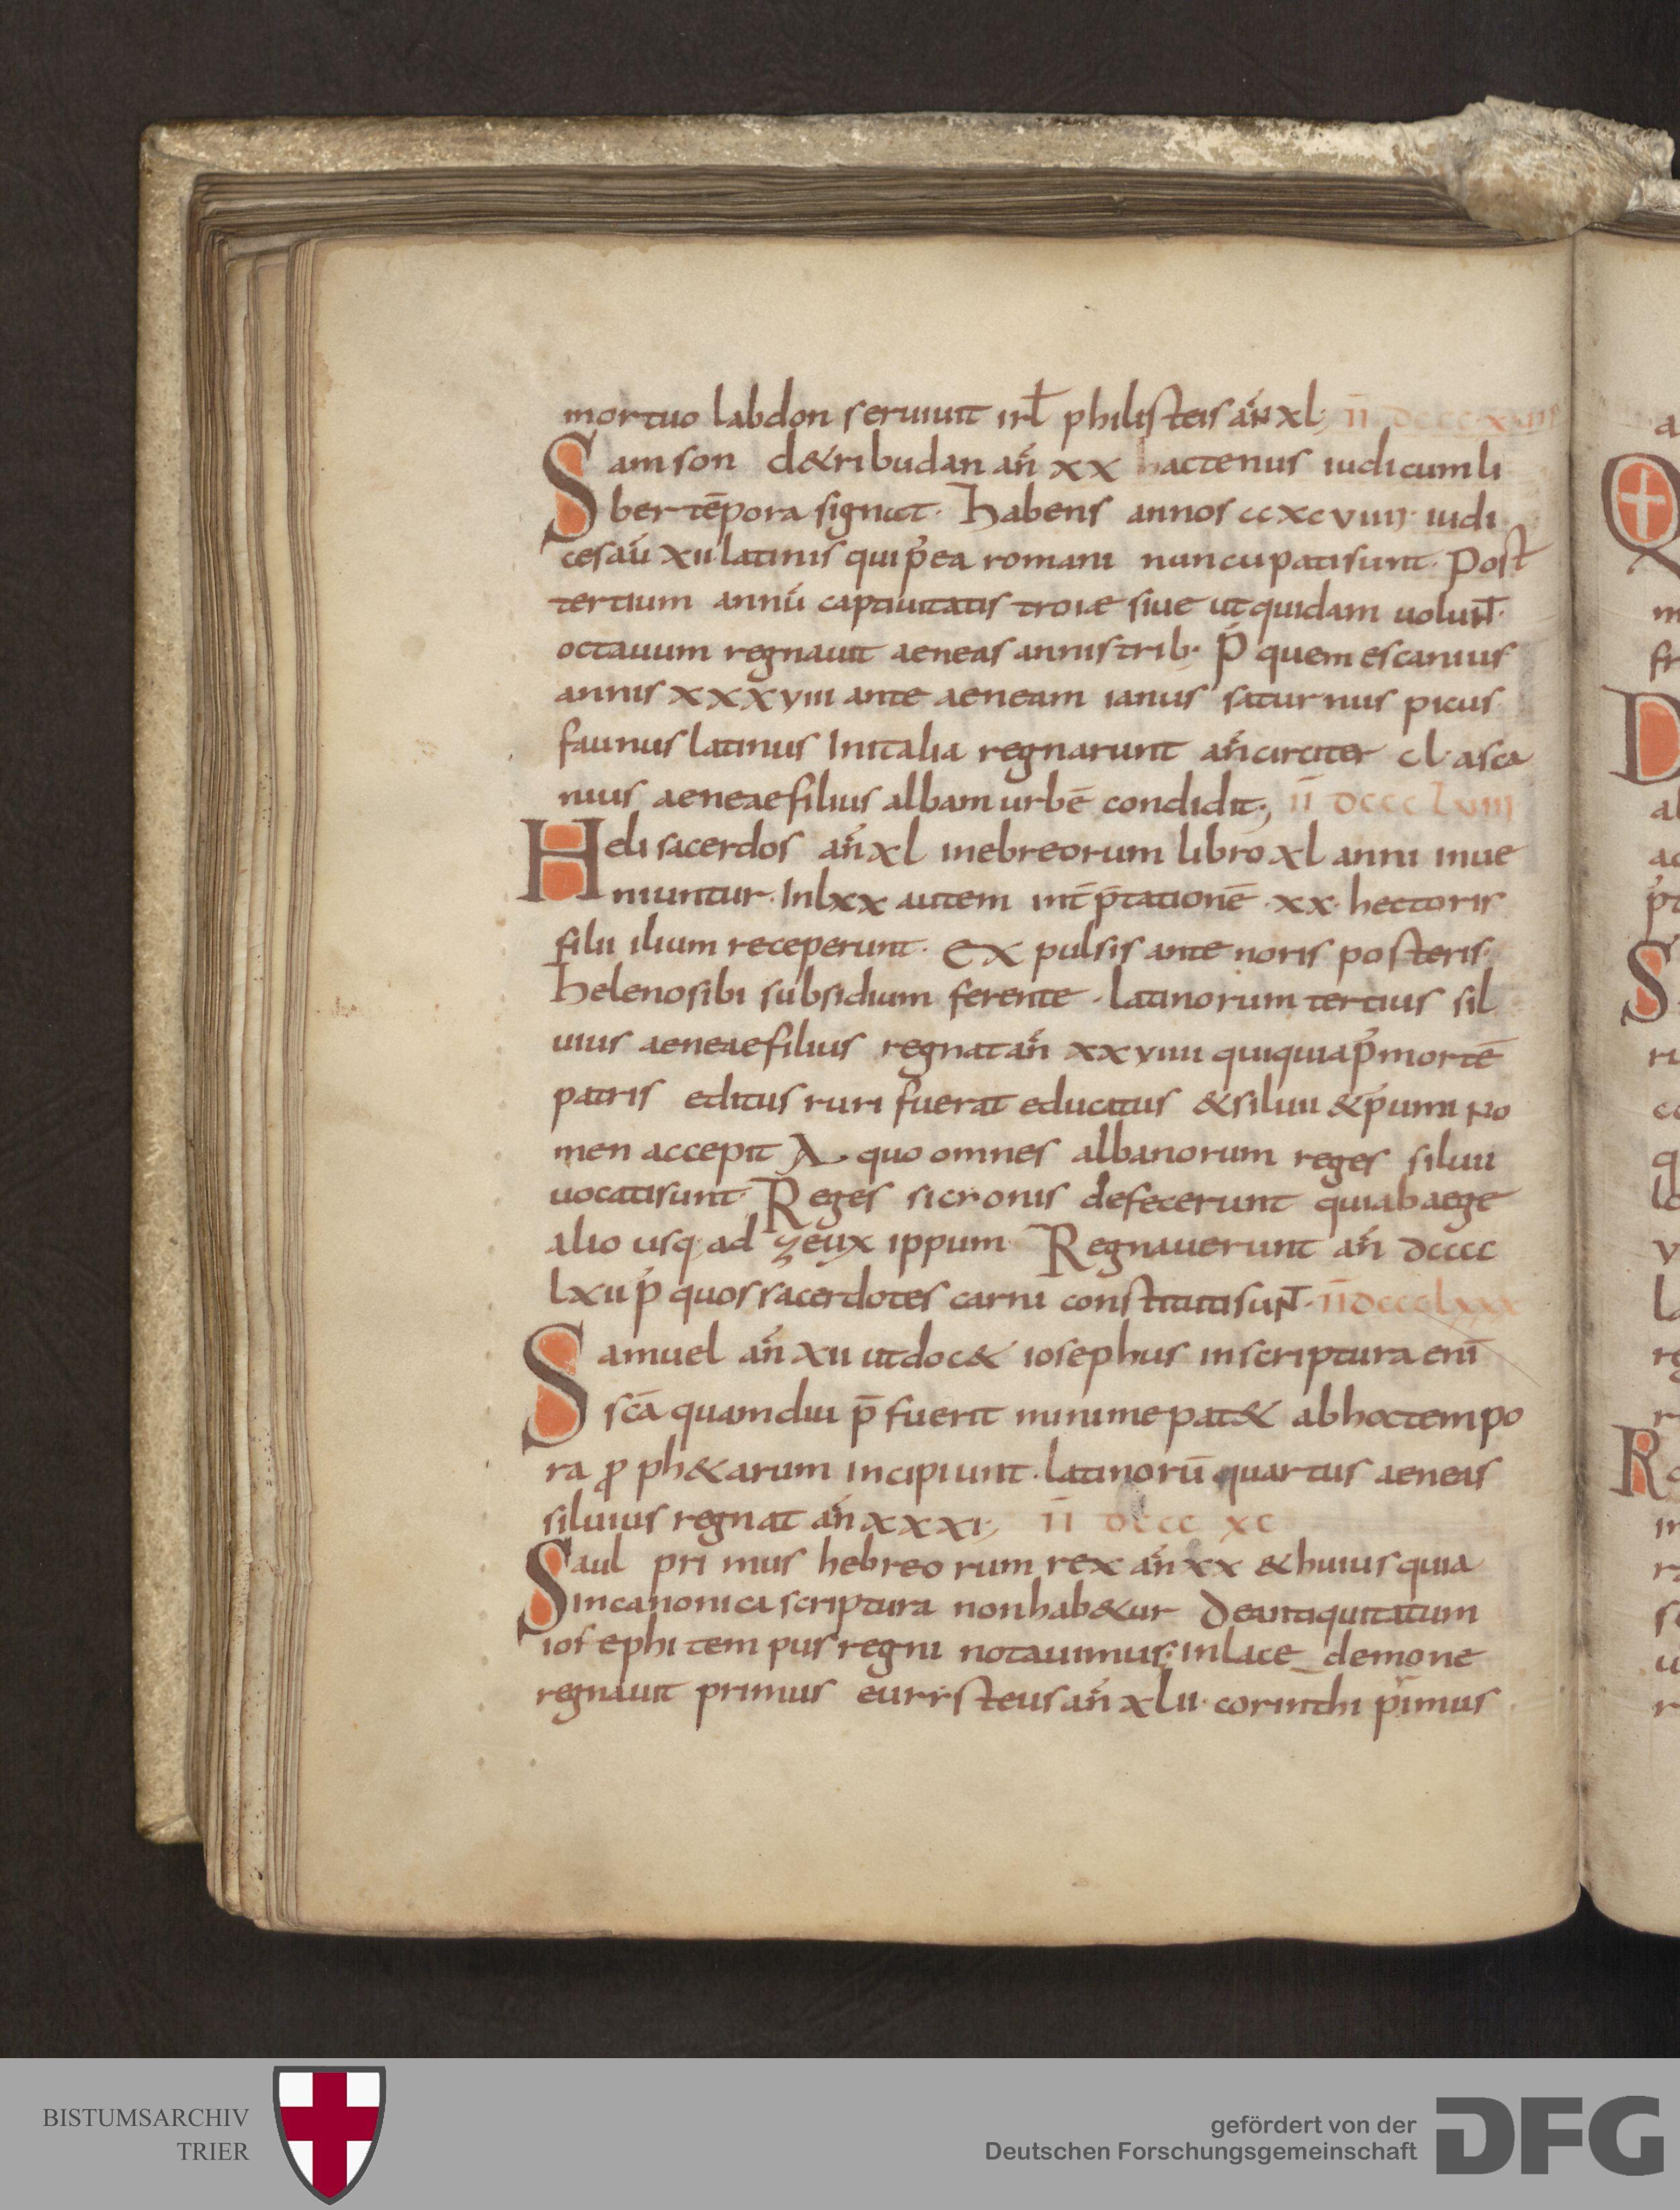 mortuo labdon seruiuit irł philisteis añ xl; īī dcccc xliiii
Samson d&ri budan añ xx hactenus iudicum li
ber tēpora signat. habens annos ccxcviiij. iudi
ces aū xii latinis qui p̾ea romani nuncupati sunt. Post
tertium annū captiuitatis troiæ siue ut quidam uolunt̄.
octauum regnauit aeneas annis trib. p̾ quem escanius
annis xxxviii ante aeneam ianus saturnus picus
faunus latinus Initalia regnarunt añ circiter cl. asca
nius aeneae filius albam urbē condidit; īī dcccc lxiiii
Heli sacerdos añ xl inebreorum libro xl anni inue
niuntur. In lxx autem int̄ p̄tationē .xx. hectoris
filii ilium receperunt. EX pulsis ante noris posteris.
heleno sibi subsidium ferente. latinorum tertius sil
uius aeneae filius regnat añ xxviiii qui quia p̾ mortē
patris editus ruri fuerat educatus & siluii & p̾umi No
men accepit A quo omnes albanorum reges siluii
uocati sunt. Reges sicronis defecerunt qui ab aege
alio usq; ad zeux ippum. Regnauerunt añ dcccc
lxii p̾ quos sacerdotes carni constituti sunt̄. īīdcccclxxx
Samuel añ xii ut doc& iosephus in scriptura enī
scā quamdiu p̄ fuerit minime pat& ab hoc tempo
ra ꝓ ph&arum incipiunt. latinorū quartus aeneas
siluius regnat añ xxxi; īī dcccc xc
Saul pri mus hebreo rum rex añ xx & huius quia
in canonica scriptura non hab&ur De antiquitatum
iosephi tem pus regni notauimus. in lace demone
regnauit primus euristeus añ xlii. corinthi p̾imus
BISTUMSARCHIV
TRIER
gefördert von der
Deutschen Forschungsgemeinschaft
DFG